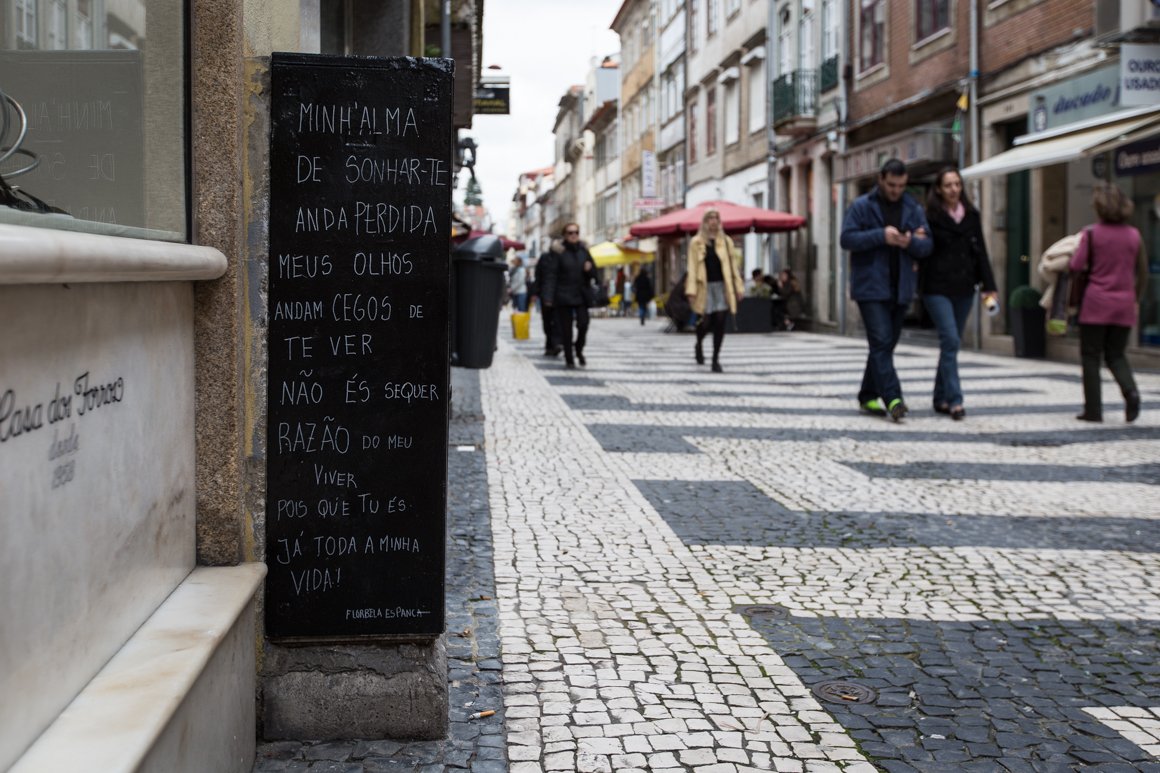 MINH'ALMA
DE SONHAR-TE
ANDA PERDIDA
MEUS OLHOS
ANDAM CEGOS DE
TE VER
NÃO ÉS SEQUER
RAZÃO DO MEU
VIVER
POIS QUE TU ÉS
JÁ TODA A MINHA
VIDA!
FLORBELA ESPANCA
Casa dos Forros
desde
1958
OURO
USADO
ducado